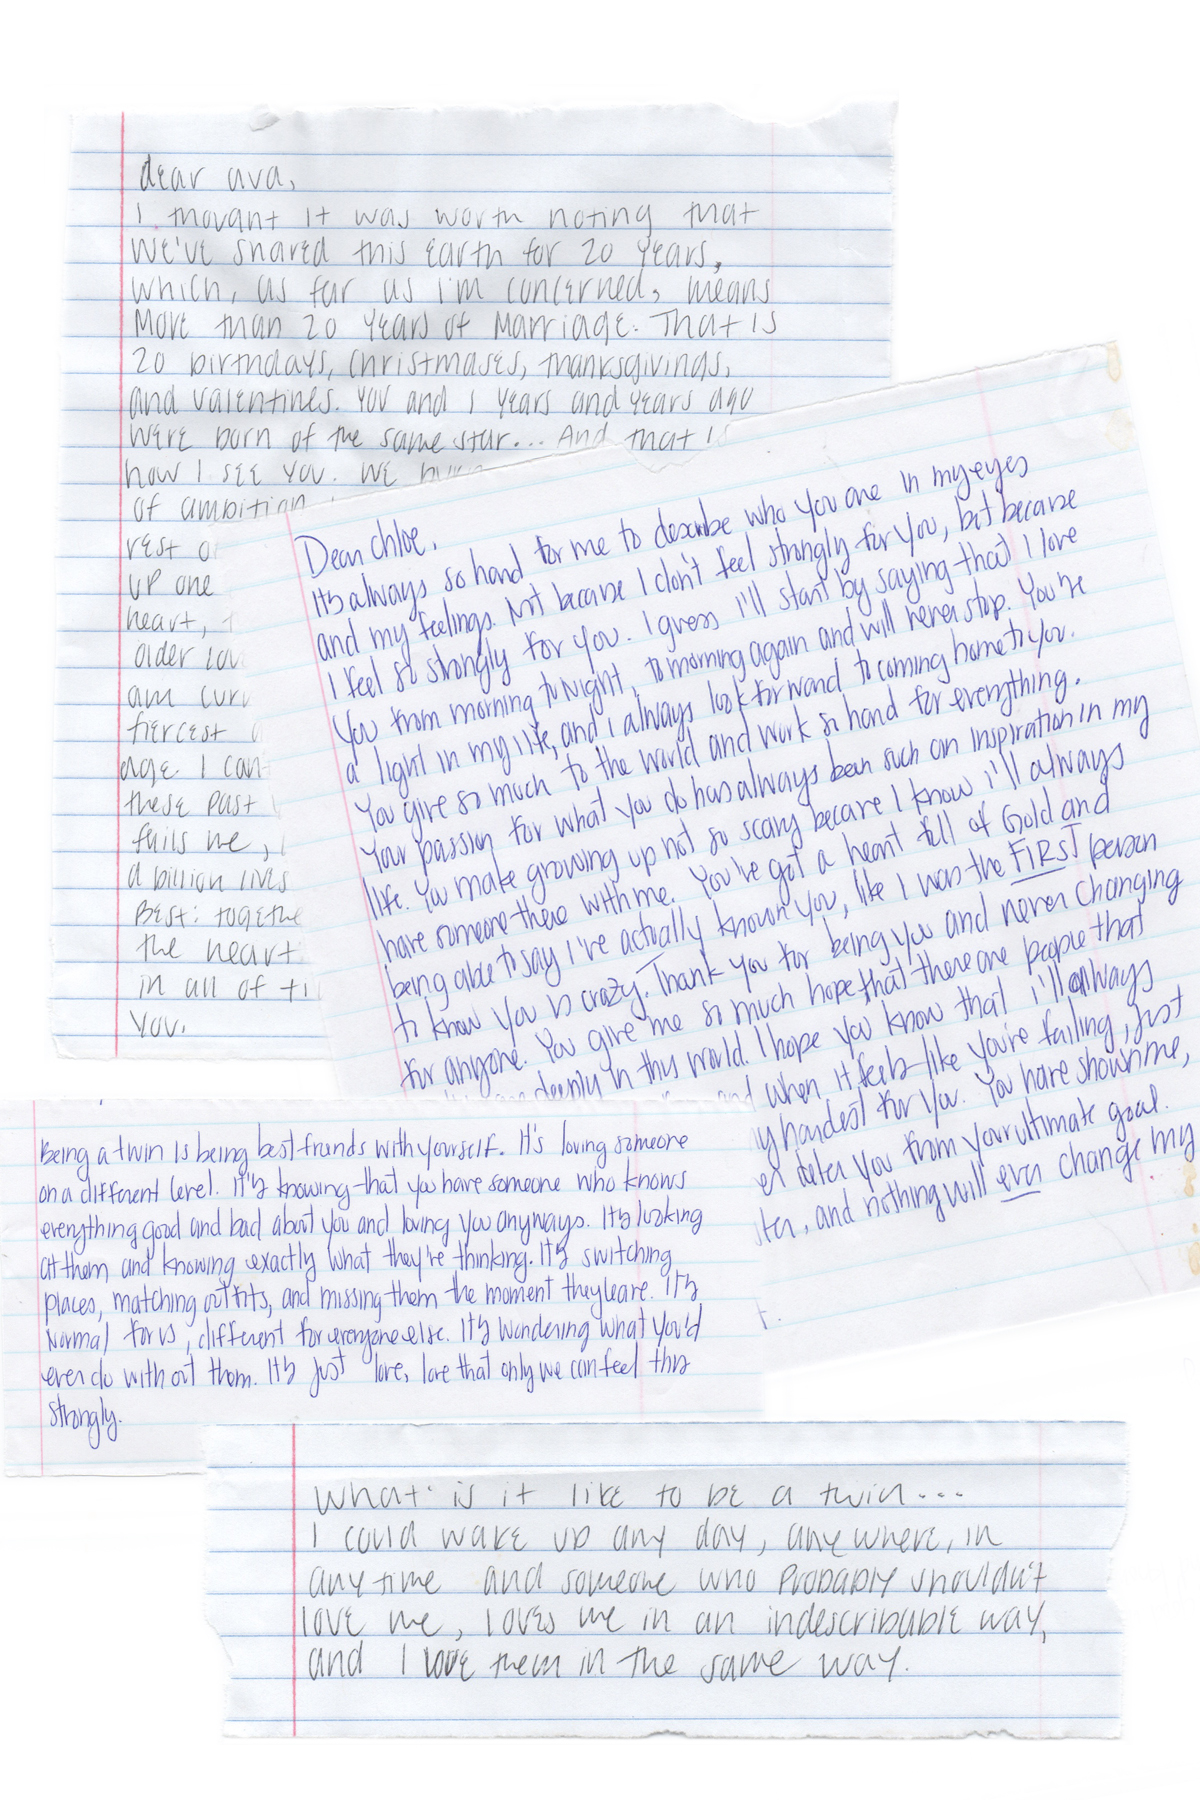 dear ava,
I thought it was worth noting that
we've shared this earth for 20 years,
which, as far as I'm concerned, means
more than 20 years of marriage. That is
20 birthdays, christmases, thanksgivings,
and valentines. you and I years and years ago
were born of the same star... And that is
how I see you. we
of ambition
rest
up one
heart,
older
am
fiercest
age. I can
these past
fails me,
a billion lives
Best:
the heart
in all of
you.
Dear Chloe,
It's always so hard for me to describe who you are in my eyes
and my feelings. Not because I don't feel strongly for you, but because
I feel so strongly for you. I guess I'll start by saying that I love
you from morning to night, to morning again and will never stop. You're
a light in my life, and I always look forward to coming home to you.
You give so much to the world and work so hard for everything.
Your passion for what you do has always been such an inspiration in my
life. You make growing up not so scary because I know I'll always
have someone there with me. You've got a heart full of Gold and
being able to say I've actually known you, like I was the FIRST person
to know you is crazy. Thank you for being you and never changing
for anyone. You give me so much hope that there are people that
deeply in this world. I hope you know that I'll always
and when it feels like you're failing, just
hardest for you. You have shown me,
deter you from your ultimate goal.
and nothing will ever change my
Being a twin is being best friends with yourself. It's loving someone
on a different level. It's knowing that you have someone who knows
everything good and bad about you and loving you anyways. It's looking
at them and knowing exactly what they're thinking. It's switching
places, matching outfits, and missing them the moment they leave. It's
normal for us, different for everyone else. It's wondering what you'd
ever do without them. It's just love, love that only we can feel this
strongly.
What is it like to be a twin...
I could wake up any day, anywhere, in
any time and someone who probably shouldn't
love me, loves me in an indescribable way,
and I love them in the same way.